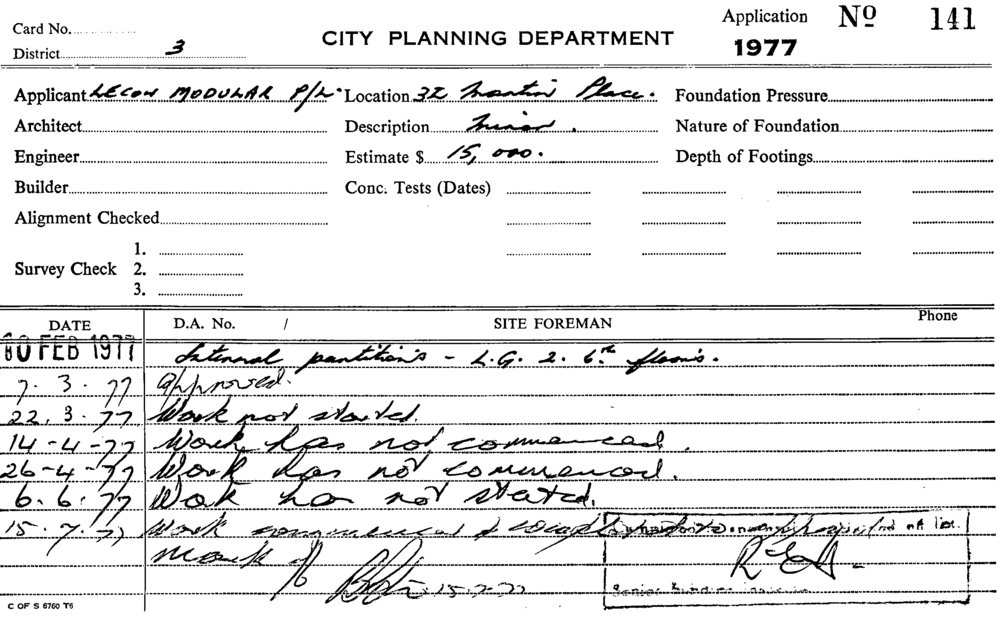 Application No 141
Card No.
District 3
CITY PLANNING DEPARTMENT
1977
Applicant LECON MODULAR P/L. Location 32 Martin Place. Foundation Pressure
Architect Description Minor. Nature of Foundation
Engineer Estimate $ 15,000. Depth of Footings
Builder Conc. Tests (Dates)
Alignment Checked
1.
Survey Check 2.
3.
DATE D.A. No. / SITE FOREMAN Phone
FEB 1977 Internal partitions - L.G. 2. 6th floors.
7. 3. 77 Approved.
22. 3. 77 Work not started.
14-4-77 Work has not commenced.
26-4-77 Work has not commenced.
6. 6. 77 Work has not started.
15. 7. 77 Work commenced &
Mark off
15-7-77
Senior
C OF S 6760 T6